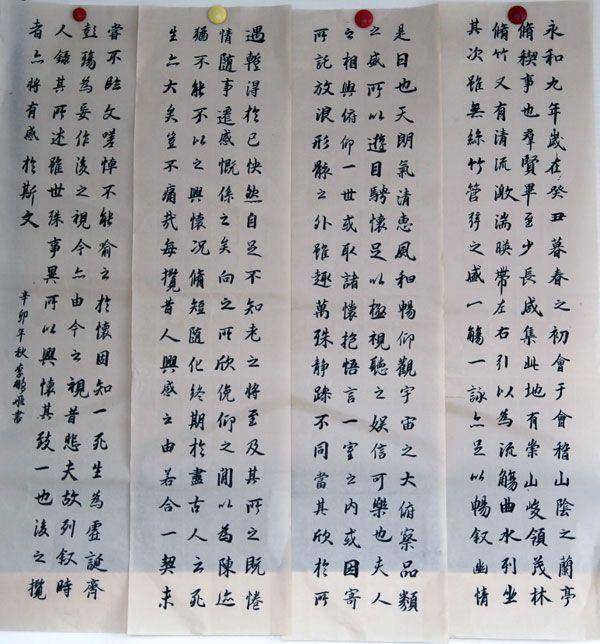 永和九年歲在癸丑暮春之初會于會稽山陰之蘭亭
脩稧事也羣賢畢至少長咸集此地有崇山峻領茂林
脩竹又有清流激湍暎帶左右引以為流觴曲水列坐
其次雖無絲竹管弦之盛一觴一詠亦足以暢叙幽情
是日也天朗氣清惠風和暢仰觀宇宙之大俯察品類
之盛所以遊目騁懷足以極視聽之娛信可樂也夫人
之相與俯仰一世或取諸懷抱悟言一室之內或因寄
所託放浪形骸之外雖趣萬殊静躁不同當其欣於所
遇蹔得於己怏然自足不知老之將至及其所之既惓
情隨事遷感慨係之矣向之所欣俛仰之閒以為陳迹
猶不能不以之興懷况脩短隨化終期於盡古人云死
生亦大矣豈不痛哉每攬昔人興感之由若合一契未
嘗不臨文嗟悼不能喻之於懷因知一死生為虛誕齊
彭殤為妄作後之視今亦由今之視昔悲夫故列叙時
人錄其所述雖世殊事異所以興懷其致一也後之攬
者亦將有感於斯文
辛卯年秋李鵬書